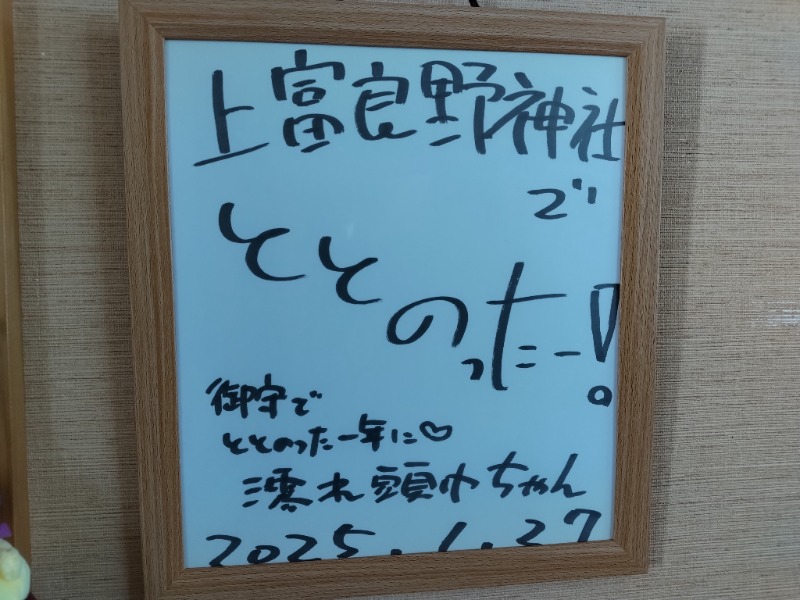 上富良野神社
で
ととのったー!
御守で
ととのった一年に♡
濡れ頭巾ちゃん
2025.1.27